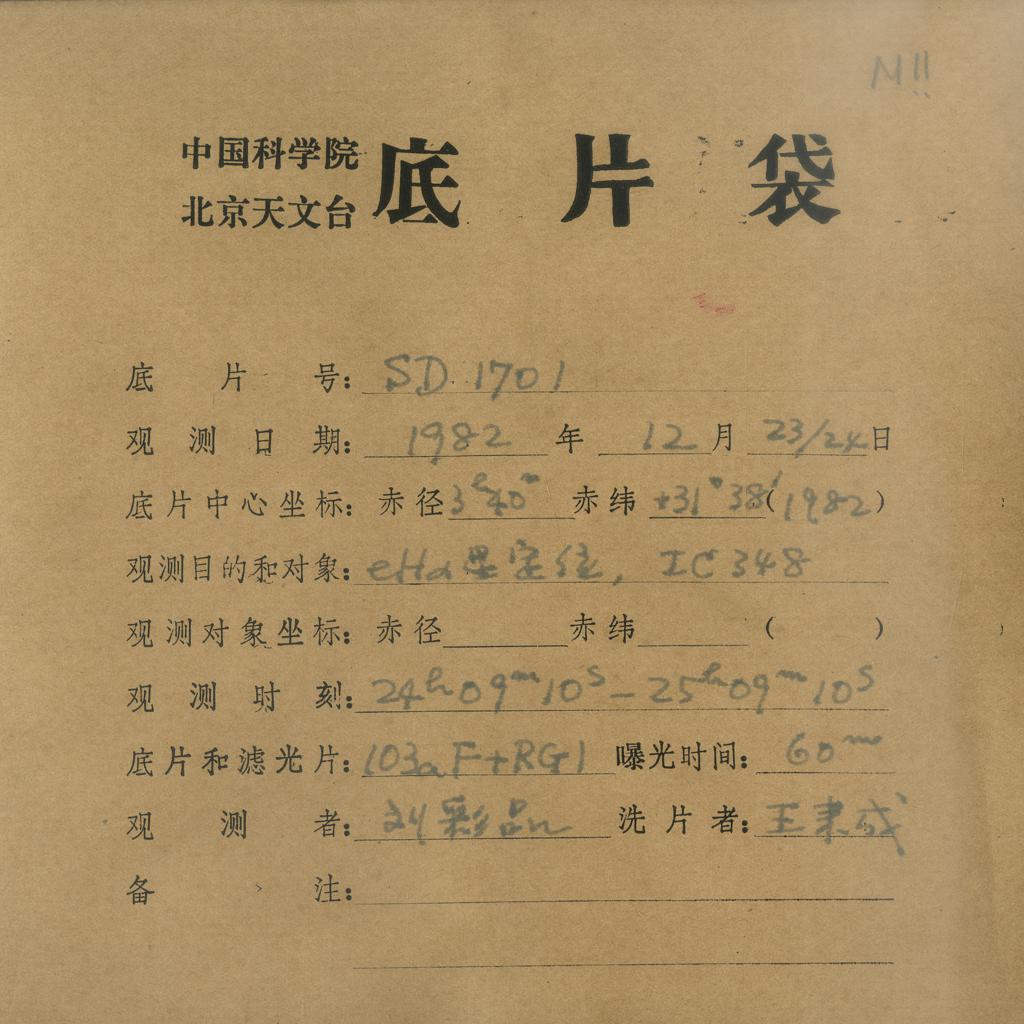 M!!
中国科学院
北京天文台 底片袋
底片号: SD 1701
观测日期: 1982 年 12 月 23/24 日
底片中心坐标: 赤径 3h40m 赤纬 +31°38′ (1982)
观测目的和对象: eHα星定位, IC 348
观测对象坐标: 赤径 赤纬 ( )
观测时刻: 24h09m10s-25h09m10s
底片和滤光片: 103aF+RG1 曝光时间: 60m
观测者: 刘彩品 洗片者: 王
备注: